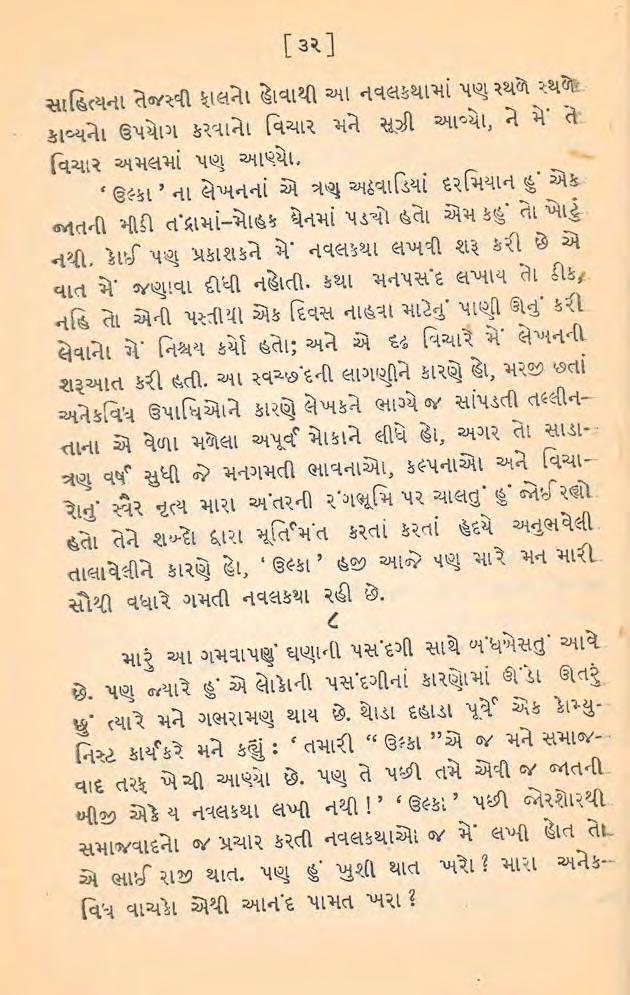 [ ૩૨ ]
સાહિત્યના તેજસ્વી ફાલનો હોવાથી આ નવલકથામાં પણ સ્થળે સ્થળે
કાવ્યનો ઉપયોગ કરવાનો વિચાર મને સૂઝી આવ્યો, ને મેં તે
વિચાર અમલમાં પણ આણ્યો.
‘ ઉલ્કા ’ ના લેખનનાં એ ત્રણ અઠવાડિયાં દરમિયાન હું એક
જાતની મીઠી તંદ્રામાં–મોહક ઘેનમાં પડ્યો હતો એમ કહું તો ખોટું
નથી. કોઈ પણ પ્રકાશકને મેં નવલકથા લખવી શરૂ કરી છે એ
વાત મેં જણાવા દીધી નહોતી. કથા મનપસંદ લખાય તો ઠીક,
નહિ તો એની પસ્તીથી એક દિવસ નાહવા માટેનું પાણી ઊનું કરી
લેવાનો મેં નિશ્ચય કર્યો હતો; અને એ દૃઢ વિચારે મેં લેખનની
શરૂઆત કરી હતી. આ સ્વચ્છંદની લાગણીને કારણે હો, મરજી છતાં
અનેકવિધ ઉપાધિઓને કારણે લેખકને ભાગ્યે જ સાંપડતી તલ્લીન–
તાના એ વેળા મળેલા અપૂર્વ મોકાને લીધે હો, અગર તો સાડા-
ત્રણ વર્ષ સુધી જે મનગમતી ભાવનાઓ, કલ્પનાઓ અને વિચા–
રોનું સ્વૈર નૃત્ય મારા અંતરની રંગભૂમિ પર ચાલતું હું જોઈ રહ્યો
હતો તેને શબ્દો દ્વારા મૂર્તિમંત કરતાં કરતાં હૃદયે અનુભવેલી
તાલાવેલીને કારણે હો, ‘ ઉલ્કા ’ હજી આજે પણ મારે મન મારી
સૌથી વધારે ગમતી નવલકથા રહી છે.
૮
મારું આ ગમવાપણું ઘણાની પસંદગી સાથે બંધબેસતું આવે
છે. પણ જ્યારે હું એ લોકોની પસંદગીનાં કારણોમાં ઊંડો ઊતરું
છું ત્યારે મને ગભરામણ થાય છે. થોડા દહાડા પૂર્વે એક કોમ્યુ-
નિસ્ટ કાર્યકરે મને કહ્યું : ‘ તમારી “ ઉલ્કા ”એ જ મને સમાજ-
વાદ તરફ ખેંચી આણ્યો છે. પણ તે પછી તમે એવી જ જાતની
બીજી એકે ય નવલકથા લખી નથી !’ ‘ ઉલ્કા ’ પછી જોરશોરથી
સમાજવાદનો જ પ્રચાર કરતી નવલકથાઓ જ મેં લખી હોત તો
એ ભાઈ રાજી થાત. પણ હું ખુશી થાત ખરો ? મારા અનેક-
વિધ વાચકો એથી આનંદ પામત ખરા ?